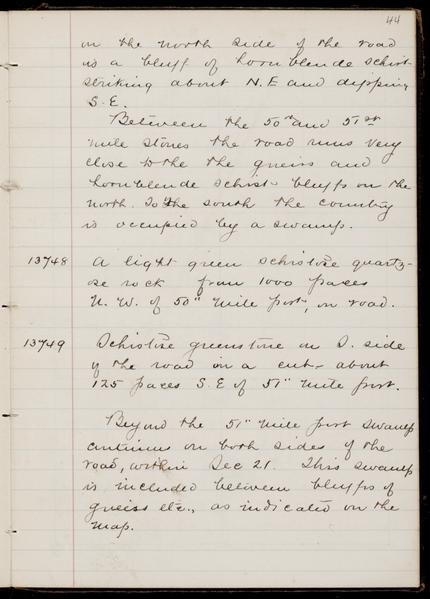 44
on the north side of the road
is a bluff of hornblende schist
striking about N.E and dipping
S.E.
Between the 50th and 51st
mile stones the road runs very
close to the the gneiss and
hornblende schist bluffs on the
north. To the south the country
is occupied by a swamp.
13748 A light green schistose quartz-
ose rock from 1000 paces
N.W. of 50" mile post, on road.
13749 Schistose greenstone on S. side
of the road in a cut - about
125 paces S.E of 51" mile post.
Beyond the 51" mile post swamp
continues on both sides of the
road, within Sec 21. This swamp
is included between bluffs of
gneiss etc., as indicated on the
map.